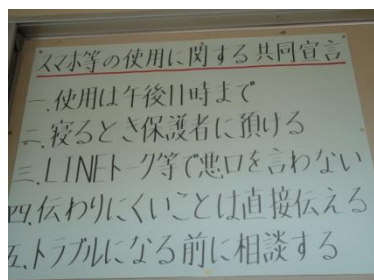 スマホ等の使用に関する共同宣言
一.使用は午後11時まで
二.寝るとき保護者に預ける
三.LINEトーク等で悪口を言わない
四.伝わりにくいことは直接伝える
五.トラブルになる前に相談する